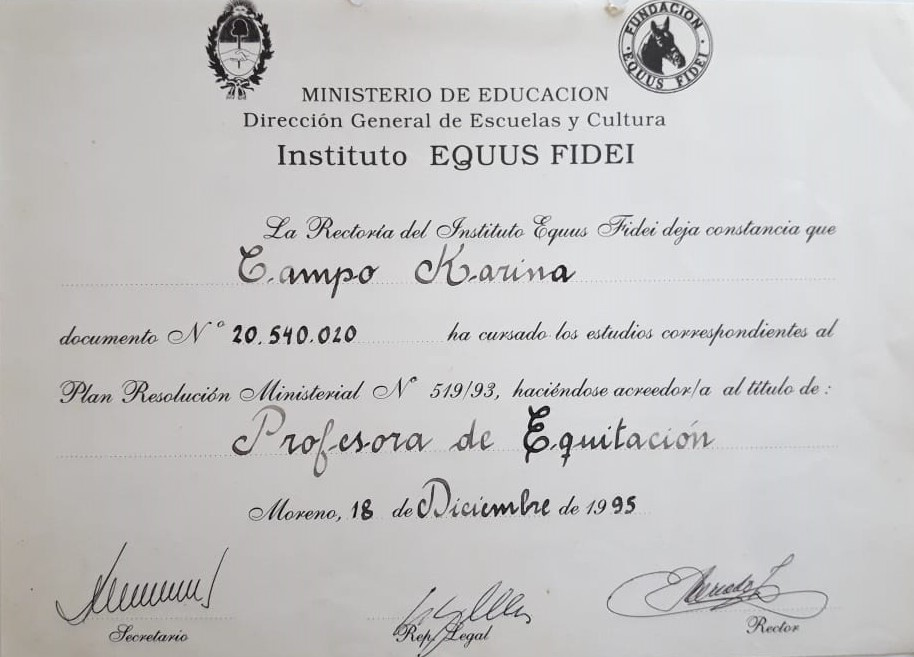 FUNDACION
EQUUS FIDEI
MINISTERIO DE EDUCACION
Dirección General de Escuelas y Cultura
Instituto EQUUS FIDEI
La Rectoría del Instituto Equus Fidei deja constancia que
Campo Karina
documento Nº 20.540.020 ha cursado los estudios correspondientes al
Plan Resolución Ministerial Nº 519/93, haciéndose acreedor/a al título de:
Profesora de Equitación
Moreno, 18 de Diciembre de 1995
Secretario
Rep. Legal
Rector